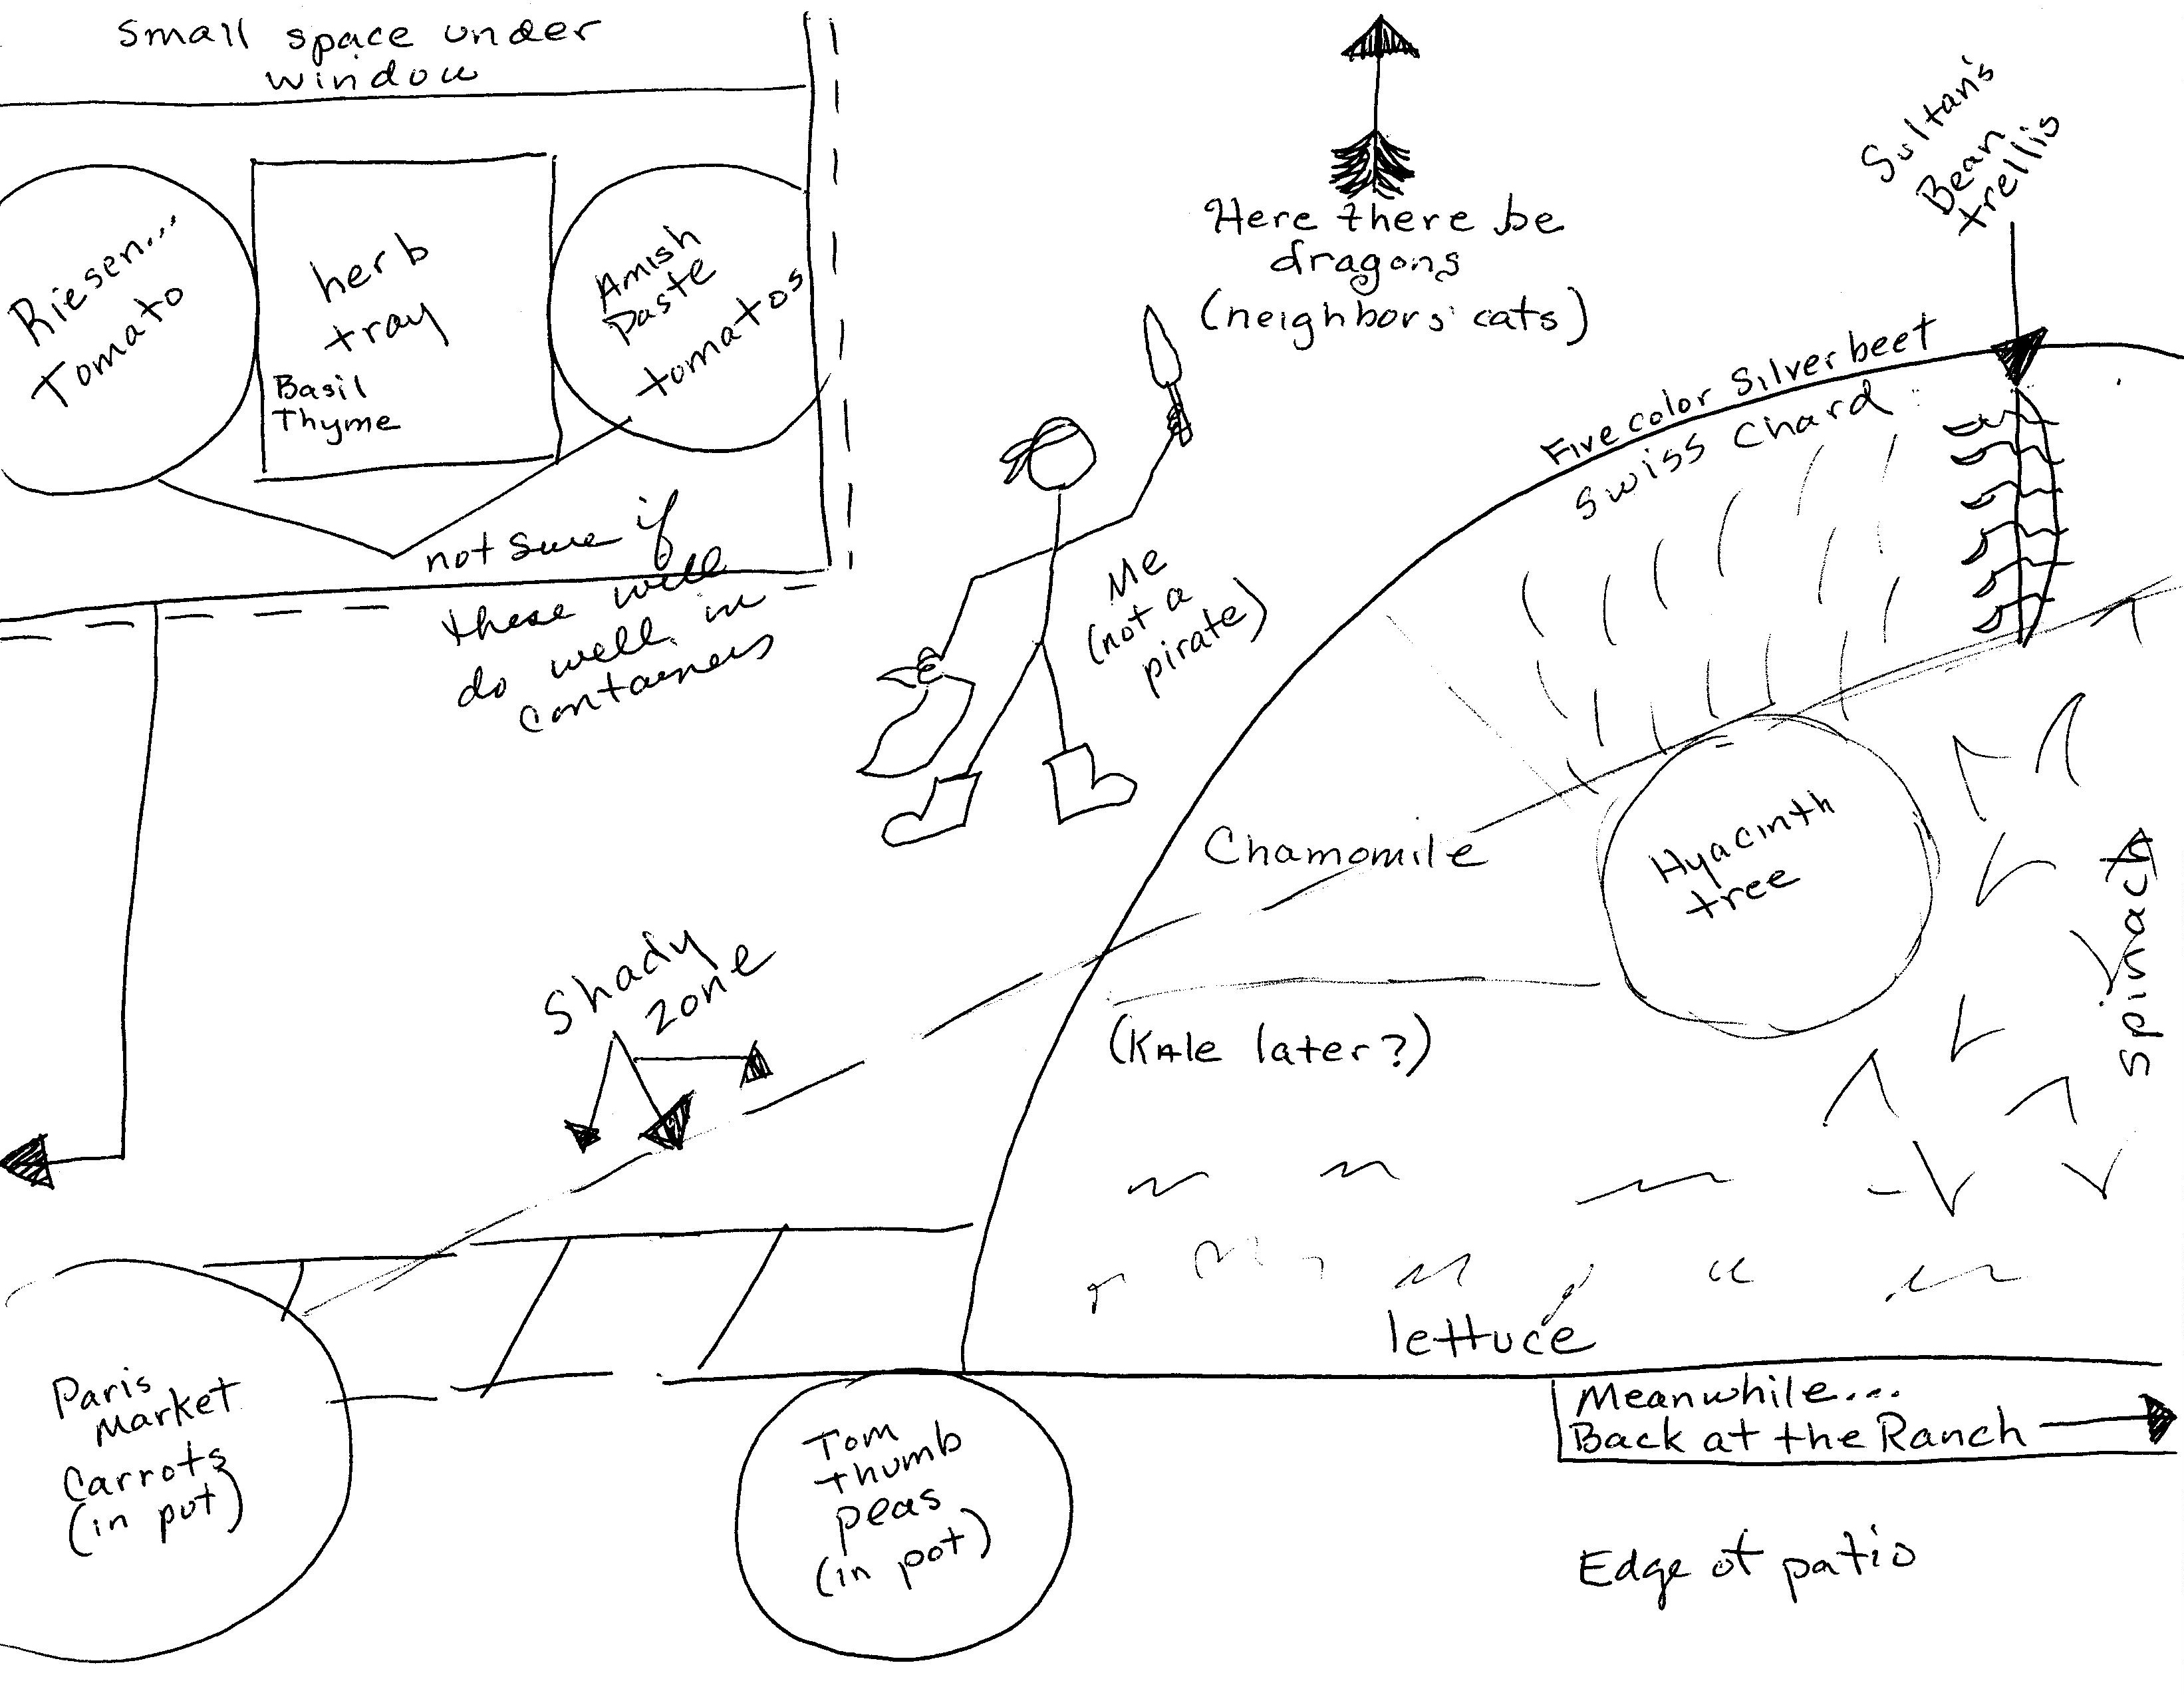 Small space under
window
Riesen...
Tomato
herb
tray
Basil
Thyme
Amish
Paste
tomatos
not sure if
these will
do well in
containers
Here there be
dragons
(neighbors' cats)
Me
(not a
pirate)
Sultan's
Bean
trellis
Five color Silverbeet
Swiss Chard
Chamomile
Hyacinth
tree
Spinach
(Kale later?)
Shady
zone
lettuce
Paris
Market
Carrots
(in pot)
Tom
thumb
peas
(in pot)
Meanwhile...
Back at the Ranch
Edge of patio